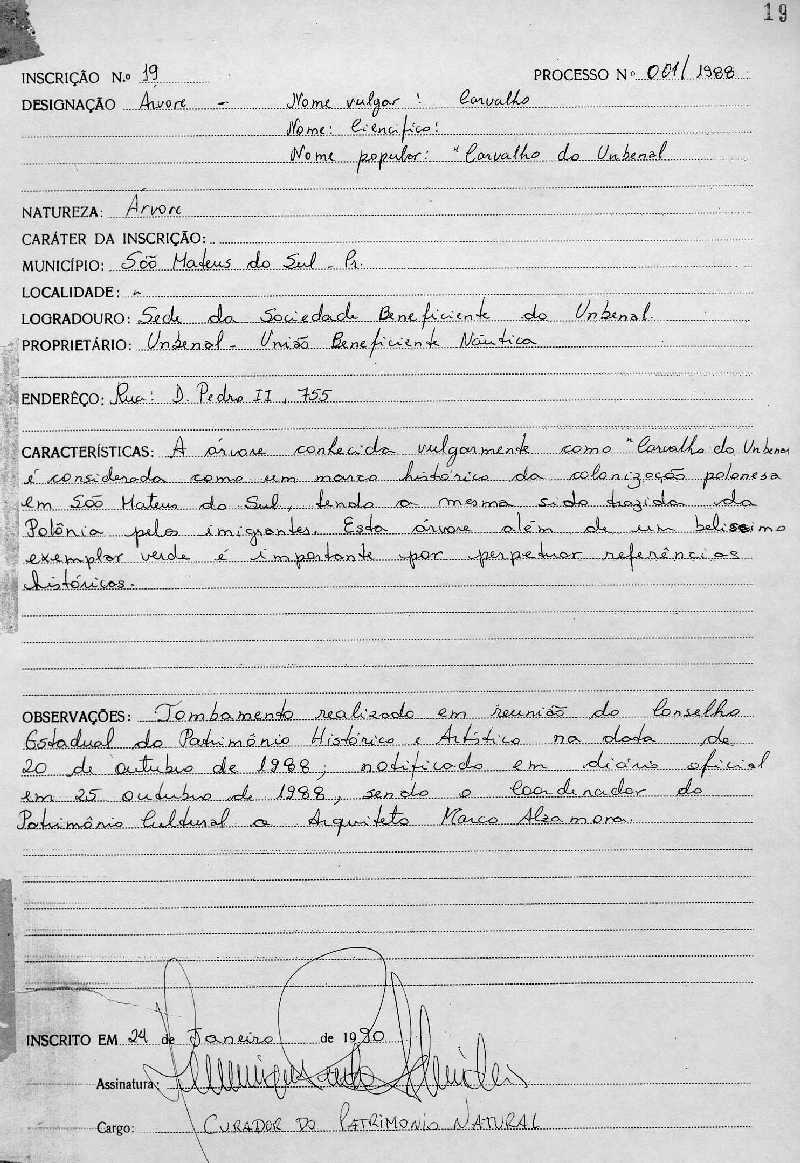 19
INSCRIÇÃO N.º 19 PROCESSO Nº 001/1988
DESIGNAÇÃO Árvore - Nome vulgar: Carvalho
Nome: Ciencífico:
Nome popular: "Carvalho do Unbenal
NATUREZA: Árvore
CARÁTER DA INSCRIÇÃO:
MUNICÍPIO: São Mateus do Sul - Pr.
LOCALIDADE: -
LOGRADOURO: Sede da Sociedade Beneficiente do Unbenal.
PROPRIETÁRIO: Unbenal - União Beneficiente Náutica
ENDERÊÇO: Rua: D. Pedro II, 755
CARACTERÍSTICAS: A árvore conhecida vulgarmente como "Carvalho do Unbenal
é considerada como um marco histórico da colonização polonesa
em São Mateus do Sul, tendo a mesma sido trazida da
Polônia pelos imigrantes. Esta árvore além de um belissimo
exemplar verde é importante por perpetuar referências
históricas.
OBSERVAÇÕES: Tombamento realizado em reunião do Conselho
Estadual do Patrimônio Histórico e Artístico na data de
20 de outubro de 1988; notificado em diário oficial
em 25 outubro de 1988, sendo o Coordenador do
Patrimônio Cultural o Arquiteto Marco Alzamora.
INSCRITO EM 24 de Janeiro de 1990
Assinatura:
Cargo: CURADOR DO PATRIMONIO NATURAL